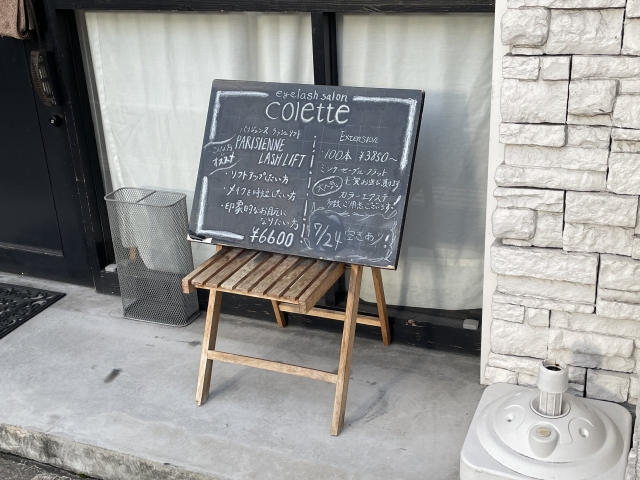 eyelash salon
colette
パリジェンヌ ラッシュリフト
PARISIENNE
LASH LIFT
こんな方
オススメ
・リフトアップしたい方
・メイクを時短したい方
・印象的なお目元に
なりたい方
¥6600
Extension
100本 ¥3850〜
ミンク セーブル フラット
カラーエクステ
7/24 空きあり!